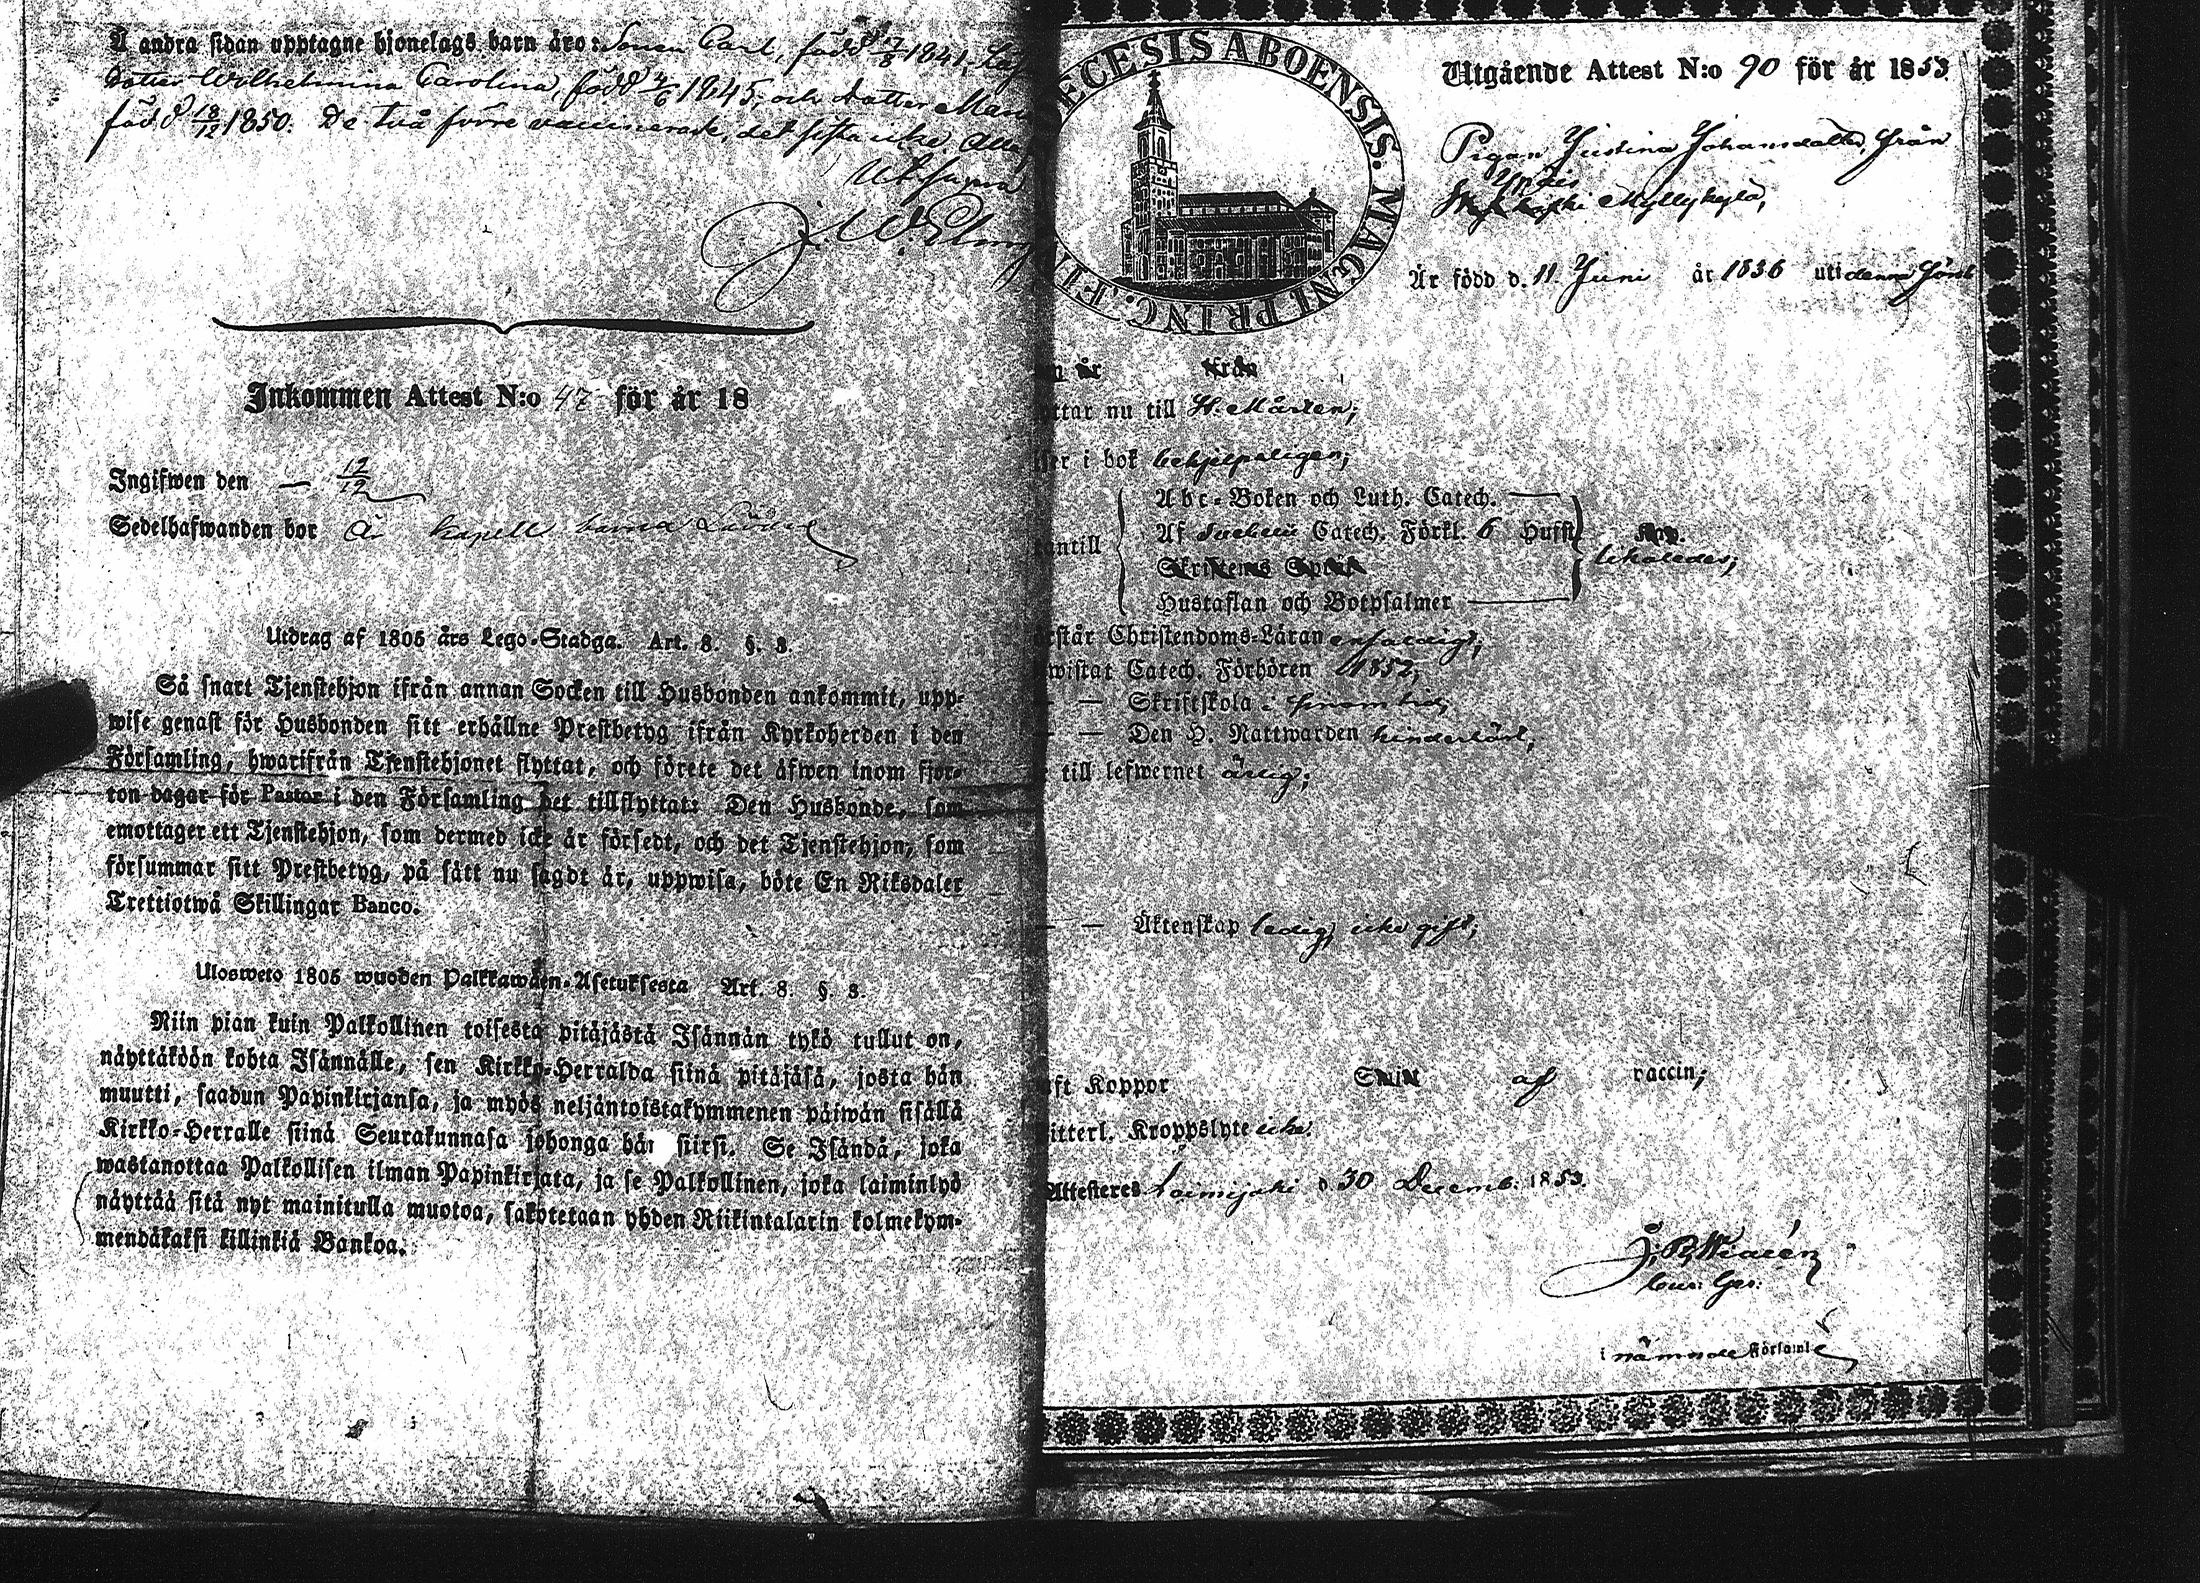 Å andra sidan upptagne hjonelags barn äro: Sonen Carl, född 7/8 1841;
dotter Wilhelmina Carolina, född 4/6 1845; och dotter
född 18/12 1850. De två förre vaccinerade, det sista icke.
Ut supra
J. W.
Inkommen Attest N:o 47 för år 18
Ingifwen den — 12/12
Sedelhafwanden bor
Utdrag af 1805 års Lego-Stadga. Art. 8. §. 3.
Så snart Tjenstehjon ifrån annan Socken till Husbonden ankommit, upp-
wise genast för Husbonden sitt erhållne Prestbetyg ifrån Kyrkoherden i den
Församling, hwarifrån Tjenstehjonet flyttat, och förete det äfwen inom fjor-
ton dagar för Pastor i den Församling det tillflyttat: Den Husbonde, som
emottager ett Tjenstehjon, som dermed icke är försedt, och det Tjenstehjon, som
försummar sitt Prestbetyg, på sätt nu sagdt är, uppwisa, böte En Riksdaler
Trettiotwå Skillingar Banco.
Ulosweto 1805 wuoden Palkkawäen-Asetuksesta Art. 8. §. 3.
Niin pian kuin Palkollinen toisesta pitäjästä Isännän tykö tullut on,
näyttäköön kohta Isännälle, sen Kirkko-Herralda siinä pitäjäsä, josta hän
muutti, saadun Papinkirjansa, ja myös neljäntoistakymmenen päiwän sisällä
Kirkko-Herralle siinä Seurakunnasa johonga hän siirsi. Se Isändä, joka
wastanottaa Palkollisen ilman Papinkirjata, ja se Palkollinen, joka laiminlyö
näyttää sitä nyt mainitulla muotoa, sakotetaan yhden Riikintalarin kolmekym-
mendäkaksi killinkiä Bankoa.
ECESIS ABOENSIS. MAGNI PRINC. FI
Utgående Attest N:o 90 för år 1853
Pigan Justina Johansdotter, från
Ypäis Myllykylä,
Är född d. 11. Juni år 1836 uti denna Förs.
n är från
ttar nu till St. Mårten;
ser i bok behjelpeligen;
Abc-Boken och Luth. Catech. —
antill Af Svebelii Catech. Förkl. 6 Hufst. likaledes;
Skriftens Språk
Hustaflan och Botpsalmer —
rstår Christendoms-Läran enfaldigt;
wistat Catech. Förhören 1852;
— — Skriftskola i framtid;
— — Den H. Nattwarden hinderlöst;
till lefwernet ärlig;
— — Äktenskap ledig, icke gift;
ft Koppor af vaccin;
itterl. Kroppslyte icke.
Attesteres Loimijoki d 30 Decemb. 1853.
i nämnde Församl.